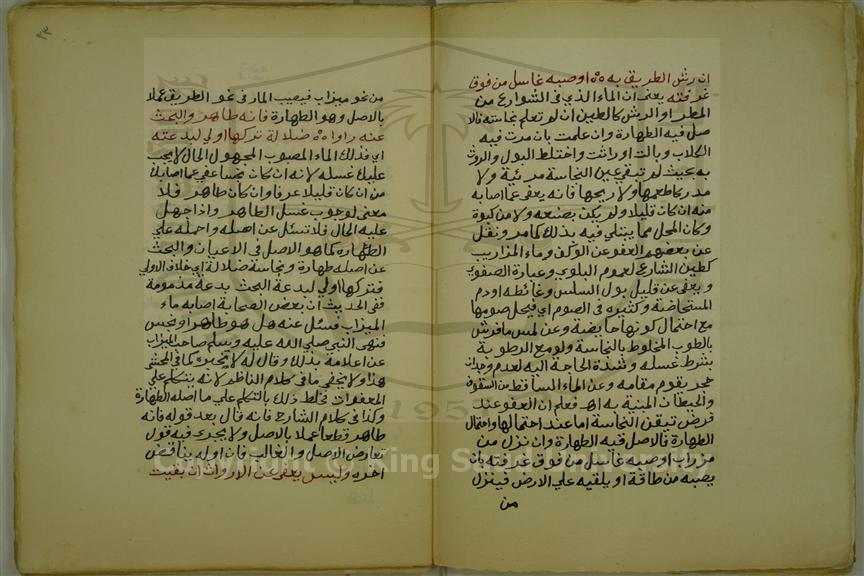 ان رش الطريق به ٥٥ او صبه غاسل من فوقا
غرفته يعني ان الماء الذي في الشوارع من
المطر او الرش كالطين ان لم تعلم نجاسته فالا
صل فيه الطهارة وان علمت بان مرت فيه
الكلاب وبالت او راثت واختلط البول والروث
به بحيث لم تبق عين النجاسة مرئية ولا
مدركا طعمها ولا ريحها فانه يعفى عما اصابه
منه ان كان قليلا ولم يكن بصنعه ولا من كبوة
وكان المحل مما يبتلي فيه بذلك كما مر ونقل
عن بعضهم العفو عن الوكف وماء المزاريب
كطين الشارع لعموم البلوي وعبارة الصفوي
ويعفى عن قليل بول السلس وغائطه او دم
المستحاضة وكثيره في الصوم اي فيحل صومها
مع احتمال كونها حايضة وعن لمس ما فرش
بالطوب المخلوط بالنجاسة ولو مع الرطوبة
بشرط غسله وشدة الحاجة اليه لعدم وجدان
حجر يقوم مقامه وعن الماء الساقط من السقوف
والحيطان المبنية به اهـ فعلم ان العفو عند
فرض تيقن النجاسة اما عند احتمالها واحتمال
الطهارة فالاصل فيه الطهارة وان نزل من
مزراب او صبه غاسل من فوق غرفته بان
يصبه من طاقة او يلقيه علي الارض فينزل
من
٣٣
من نحو ميزاب فيصيب المار في نحو الطريق عملا
بالاصل وهو الطهارة فانه طاهر والبحث
عنه راوا ٥٥ ضلالة تركها اولي لبدعته
اي فذلك الماء المصبوب المجهول الحال لا يجب
عليك غسله لانه ان كان نجسا عفي عما اصابك
من ان كان قليلا عرفا وان كان طاهر فلا
معنى لوجوب غسل الطاهر واذا جهل
عليه الحال فلا تسئل عن اصله واحمله علي
الطهارة كما هو الاصل في الاعيان والبحث
عن اصله طهارة ونجاسة ضلالة اي خلاف الاولي
فتركها اولي لبدعة البحث بدعة مذمومة
ففي الحديث ان بعض الصحابة اصابه ماء
الميزاب فسئل عنه هل هو طاهر او نجس
فنهى النبي صلي الله عليه وسلم صاحب الميزاب
عن اعلامه بذلك وقال له لا تخبره كما في المحشى
هذا ولا يخفي ما في كلام الناظم لانه يتكلم علي
المعفوات فخلط ذلك بالتكلم علي ما اصله الطهارة
وكذا في كلام الشارح فانه قال بعد قوله فانه
طاهر قطعا عملا بالاصل ولا يجري فيه قول
تعارض الاصل والغالب فان اوله يناقض
اخره وليس يعفى عن الارواث ان بقيت
Copyright © King Saud University
1957